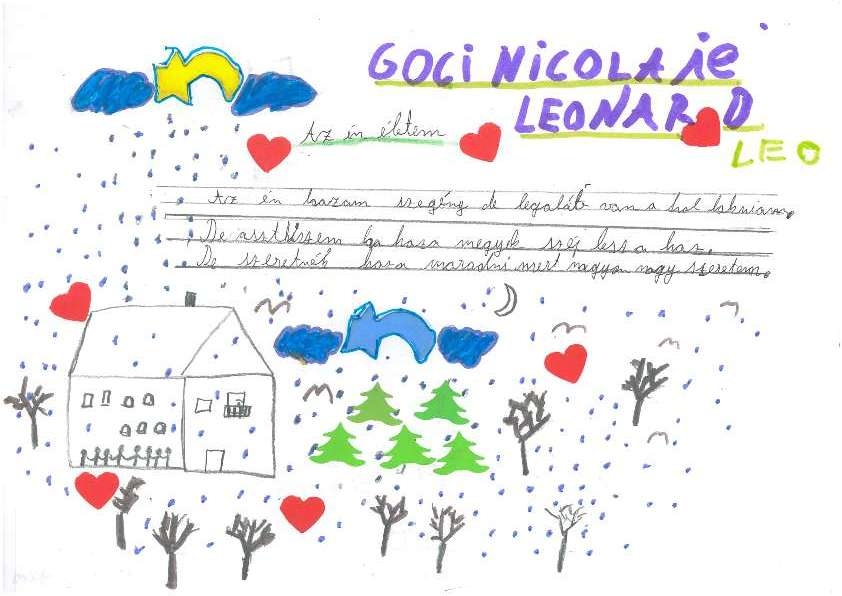 GOCI NICOLAJE
LEONARD
LEO
Az én életem
Az én hazam szegény de legalább van a hol lakniam.
De aszthiszem ha haza megyek széj less a haz.
De szeretnék haza maradni mert nagyon nagy szeretem.